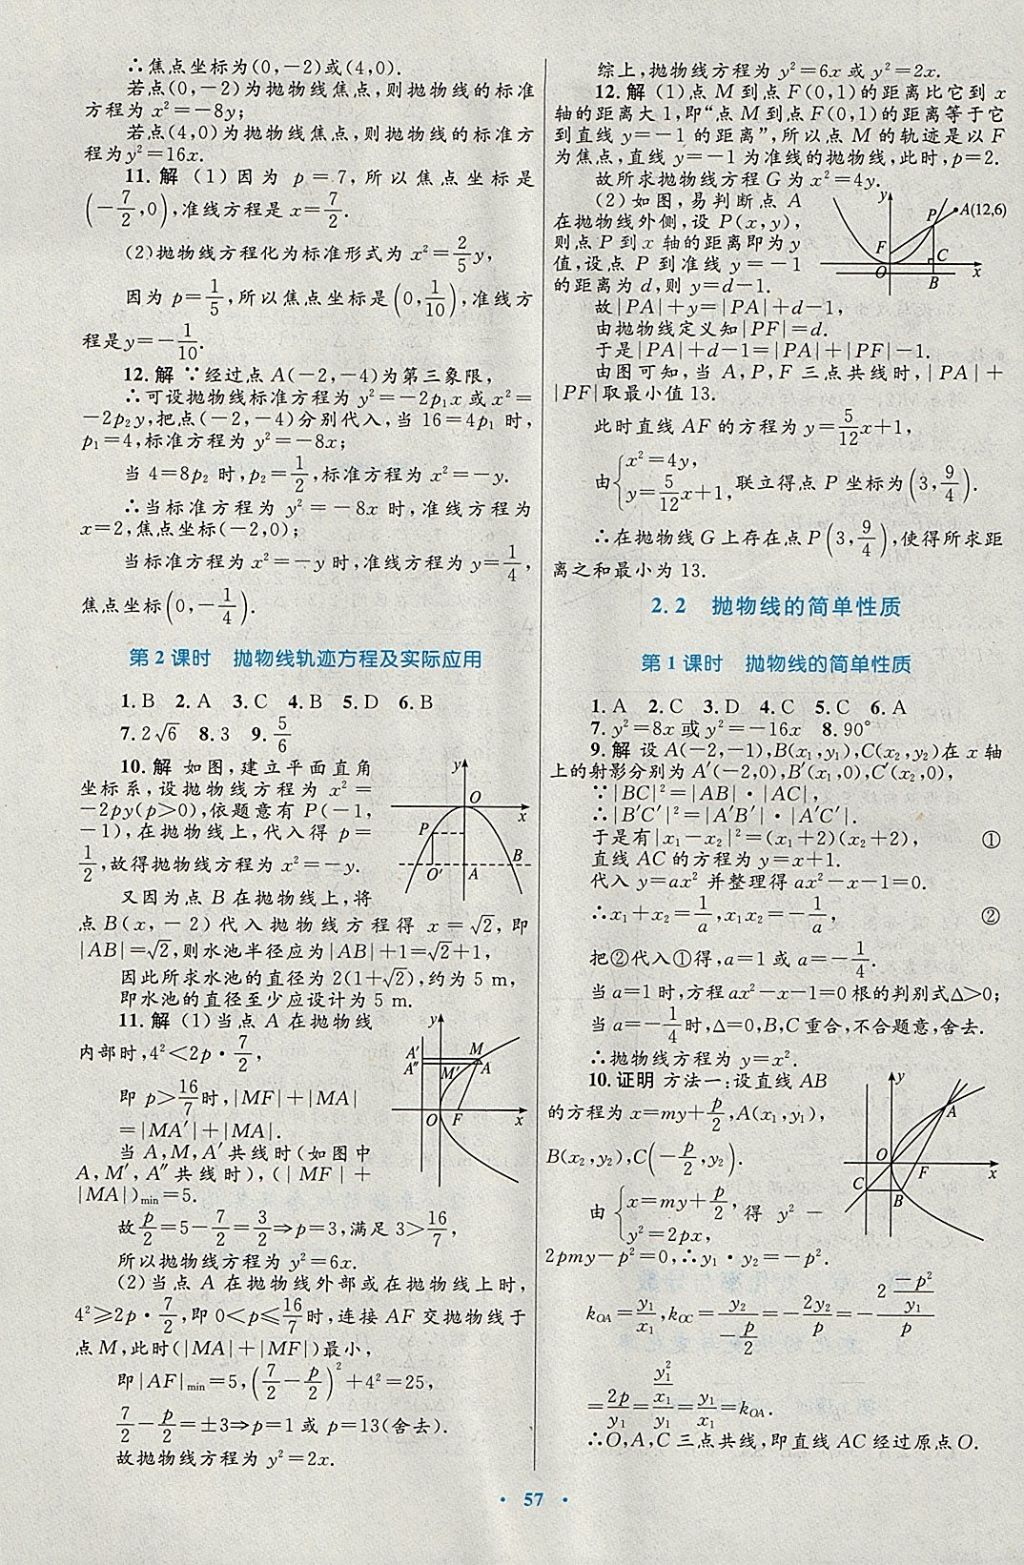 ∴焦点坐标为(0,-2)或(4,0).
若点(0,-2)为抛物线焦点,则抛物线的标准
方程为x²=-8y;
若点(4,0)为抛物线焦点,则抛物线的标准方
程为y²=16x.
11.解 (1)因为 p=7,所以焦点坐标是
(-7/2,0),准线方程是 x=7/2.
(2)抛物线方程化为标准形式为 x²=2/5y,
因为 p=1/5,所以焦点坐标是(0,1/10),准线方
程是y=-1/10.
12.解 ∵经过点A(-2,-4)为第三象限,
∴可设抛物线标准方程为 y²=-2p₁x或x²=
-2p₂y,把点(-2,-4)分别代入,当 16=4p₁ 时,
p₁=4,标准方程为 y²=-8x;
当 4=8p₂ 时,p₂=1/2,标准方程为 x²=-y.
∴当标准方程为 y²=-8x 时,准线方程为
x=2,焦点坐标(-2,0);
当标准方程为 x²=-y 时,准线方程为 y=1/4,
焦点坐标(0,-1/4).
第 2 课时 抛物线轨迹方程及实际应用
1.B 2.A 3.C 4.B 5.D 6.B
7.2√6 8.3 9.5/6
10.解 如图,建立平面直角
坐标系,设抛物线方程为 x²=
-2py(p>0),依题意有 P(-1,
-1),在抛物线上,代入得 p=
1/2,故得抛物线方程为 x²=-y.
y
O
x
P
B
O′
A
又因为点 B 在抛物线上,将
点 B(x,-2)代入抛物线方程得 x=√2,即
|AB|=√2,则水池半径应为|AB|+1=√2+1,
因此所求水池的直径为 2(1+√2),约为 5 m,
即水池的直径至少应设计为 5 m.
11.解 (1)当点 A 在抛物线
内部时,4²<2p·7/2,
即 p>16/7时,|MF|+|MA|
=|MA′|+|MA|.
当 A,M,A′共线时(如图中
A,M′,A″共线时),(|MF|+
|MA|)min=5.
y
A′
M
A″
M′
A
O
F
x
故p/2=5-7/2=3/2⇒p=3,满足 3>16/7,
所以抛物线方程为 y²=6x.
(2)当点 A 在抛物线外部或在抛物线上时,
4²≥2p·7/2,即 0<p≤16/7时,连接 AF 交抛物线于
点M,此时(|MA|+|MF|)最小,
即|AF|min=5,(7/2-p/2)²+4²=25,
7/2-p/2=±3⇒p=1 或 p=13(舍去).
故抛物线方程为 y²=2x.
综上,抛物线方程为 y²=6x 或 y²=2x.
12.解 (1)点 M 到点 F(0,1)的距离比它到 x
轴的距离大 1,即“点 M 到点 F(0,1)的距离等于它
到直线 y=-1 的距离”,所以点 M 的轨迹是以 F
为焦点,直线 y=-1 为准线的抛物线,此时,p=2.
故所求抛物线方程G 为 x²=4y.
(2)如图,易判断点 A
在抛物线外侧,设 P(x,y),
则点 P 到 x 轴的距离即为 y
值,设点 P 到准线 y=-1
的距离为 d,则 y=d-1.
y
P
A(12,6)
F
C
O
B
x
故|PA|+y=|PA|+d-1,
由抛物线定义知|PF|=d.
于是|PA|+d-1=|PA|+|PF|-1.
由图可知,当 A,P,F 三点共线时,|PA|+
|PF|取最小值 13.
此时直线 AF 的方程为 y=5/12x+1,
由{x²=4y, y=5/12x+1,联立得点 P 坐标为(3,9/4).
∴在抛物线 G 上存在点 P(3,9/4),使得所求距
离之和最小为 13.
2.2 抛物线的简单性质
第 1 课时 抛物线的简单性质
1.A 2.C 3.D 4.C 5.C 6.A
7.y²=8x或y²=-16x 8.90°
9.解 设 A(-2,-1),B(x₁,y₁),C(x₂,y₂)在 x 轴
上的射影分别为 A′(-2,0),B′(x₁,0),C′(x₂,0),
∵|BC|²=|AB|·|AC|,
∴|B′C′|²=|A′B′|·|A′C′|.
于是有|x₁-x₂|²=(x₁+2)(x₂+2), ①
直线 AC 的方程为 y=x+1.
代入 y=ax² 并整理得 ax²-x-1=0.
∴x₁+x₂=1/a,x₁x₂=-1/a, ②
把②代入①得,a=1 或 a=-1/4.
当a=1时,方程 ax²-x-1=0根的判别式Δ>0;
当 a=-1/4时,Δ=0,B,C 重合,不合题意,舍去.
∴抛物线方程为 y=x².
10.证明 方法一:设直线 AB
的方程为 x=my+p/2,A(x₁,y₁),
B(x₂,y₂),C(-p/2,y₂).
由{x=my+p/2, y²=2px, 得 y²-
2pmy-p²=0,∴y₁·y₂=-p².
y
A
O
F
x
C
B
kOA=y₁/x₁,kOC=y₂/(-p/2)=-2y₂/p=-(2(-p²/y₁))/p
=2p/y₁=(y₁²/x₁)/y₁=y₁/x₁=kOA.
∴O,A,C 三点共线,即直线 AC 经过原点 O.
· 57 ·